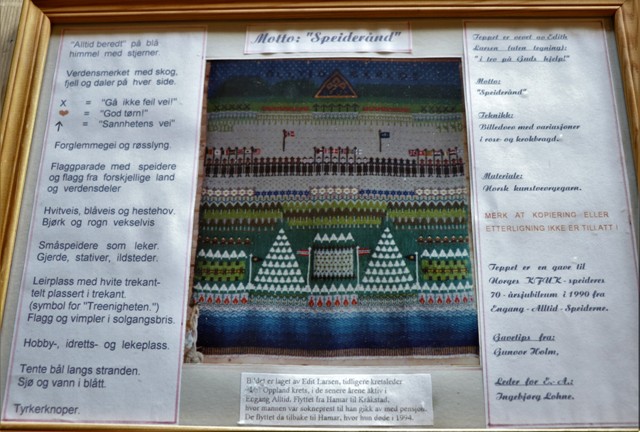 Motto: "Speiderånd"
"Alltid beredt" på blå
himmel med stjerner.
Verdensmerket med skog,
fjell og daler på hver side.
X = "Gå ikke feil vei!"
❤ = "God tørn!"
↑ = "Sannhetens vei"
Forglemmegei og røsslyng.
Flaggparade med speidere
og flagg fra forskjellige land
og verdensdeler
Hvitveis, blåveis og hestehov.
Bjørk og rogn vekselvis.
Småspeidere som leker.
Gjerde, stativer, ildsteder.
Leirplass med hvite trekant-
telt plassert i trekant.
(symbol for "Treenigheten.")
Flagg og vimpler i solgangsbris.
Hobby-, idretts- og lekeplass.
Tente bål langs stranden.
Sjø og vann i blått.
Tyrkerknoper.
Teppet er vevet av Edith
Larsen (uten tegning):
"i tro på Guds hjelp!"
Motto:
"Speiderånd"
Teknikk:
Billedvev med variasjoner
i rose- og krokbragd.
Materiale:
Norsk kunstvevgarn.
MERK AT KOPIERING ELLER
ETTERLIGNING IKKE ER TILLATT!
Teppet er en gave til
Norges KFUK-speideres
70-årsjubileum i 1990 fra
Engang-Alltid-Speiderne.
Gavetips fra:
Gunvor Holm,
Leder for E.-A.:
Ingebjørg Lohne.
Bildet er laget av Edit Larsen, tidligere kretsleder
Oppland krets, i de senere årene aktiv i
Engang Alltid. Flyttet fra Hamar til Kråkstad,
hvor mannen var sokneprest til han gikk av med pensjon.
De flyttet da tilbake til Hamar, hvor hun døde i 1994.